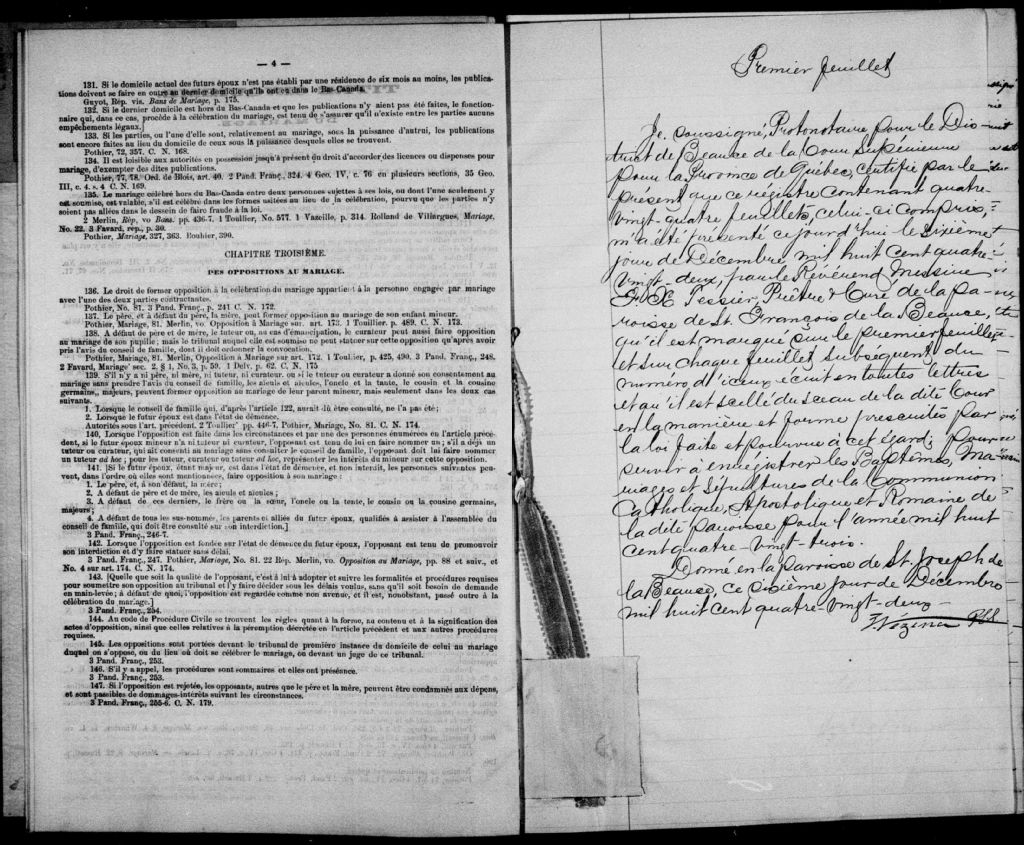 — 4 —
131. Si le domicile actuel des futurs époux n'est pas établi par une résidence de six mois au moins, les publica-
tions doivent se faire en outre au dernier domicile qu'ils ont eu dans le Bas-Canada.
Guyot, Rép. vis. Bans de Mariage, p. 175.
132. Si le dernier domicile est hors du Bas-Canada et que les publications n'y aient pas été faites, le fonction-
naire qui, dans ce cas, procède à la célébration du mariage, est tenu de s'assurer qu'il n'existe entre les parties aucuns
empêchements légaux.]
133. Si les parties, ou l'une d'elle sont, relativement au mariage, sous la puissance d'autrui, les publications
sont encore faites au lieu du domicile de ceux sous la puissance desquels elles se trouvent.
Pothier, 72, 357. C. N. 168.
134. Il est loisible aux autorités en possession jusqu'à présent du droit d'accorder des licences ou dispenses pour
mariage, d'exempter des dites publications.
Pothier, 77, 78. Ord. de Blois, art. 40. 2 Pand. Franç., 324. 4 Geo. IV, c. 76 en plusieurs sections, 35 Geo.
III, c. 4. s. 4 C. N. 169.
135. Le mariage célébré hors du Bas-Canda entre deux personnes sujettes à ses lois, ou dont l'une seulement y
est soumise, est valable, s'il est célébré dans les formes usitées au lieu de la célébration, pourvu que les parties n'y
soient pas allées dans le dessein de faire fraude à la loi.
2 Merlin, Rép, vo Bans. pp. 436-7. 1 Toullier, No. 577. 1 Vazeille, p. 314. Rolland de Villargues, Mariage,
No. 22. 3 Favard, rép., p. 30.
Pothier, Mariage, 327, 363. Bouhier, 390.
CHAPITRE TROISIÈME.
DES OPPOSITIONS AU MARIAGE.
136. Le droit de former opposition à la célébration du mariage appartient à la personne engagée par mariage
avec l'une des deux parties contractantes.
Pothier, No. 81. 3 Pand. Franç., p. 241 C. N. 172.
137. Le père, et à défaut du père, la mère, peut former opposition au mariage de son enfant mineur.
Pothier, Mariage, 81. Merlin, vo. Opposition à Mariage sur. art. 173. 1 Toullier. p. 489. C. N. 173.
138. A défaut de père et de mère, le tuteur ou, au cas d'émancipation, le curateur peut aussi faire opposition
au mariage de son pupille; mais le tribunal auquel elle est soumise ne peut statuer sur cette opposition qu'après avoir
pris l'avis du conseil de famille, dont il doit ordonner la convocation.
Pothier, Mariage, 81. Merlin, Opposition à Mariage sur art. 172. 1 Toullier, p. 425, 490. 3 Pand. Franç., 248.
2 Favard, Mariage sec. 2. § 1, No. 3, p. 59. 1 Delv. p. 62. C. N. 175
139. S'il n'y a ni père, ni mère, ni tuteur, ni curateur, ou si le tuteur ou curateur a donné son consentement au
mariage sans prendre l'avis du conseil de famille, les aïeuls et aïeules, l'oncle et la tante, le cousin et la cousine
germains, majeurs, peuvent former opposition au mariage de leur parent mineur, mais seulement dans les deux cas
suivants.
1. Lorsque le conseil de famille qui, d'après l'article 122, aurait dû être consulté, ne l'a pas été;
2. Lorsque le futur époux est dans l'état de démence.
Autorités sous l'art. précédent. 2 Toullier pp. 446-7. Pothier, Mariage, No. 81. C. N. 174.
140. Lorsque l'opposition est faite dans les circonstances et par une des personnes énumérées en l'article précé-
dent, si le futur époux mineur n'a ni tuteur ni curateur, l'opposant est tenu de lui en faire nommer un; s'il a déjà un
tuteur ou curateur, qui ait consenti au mariage sans consulter le conseil de famille, l'opposant doit lui faire nommer
un tuteur ad hoc; pour les tuteur, curateur ou tuteur ad hoc, représenter les intérêts du mineur sur cette opposition.
141. [Si le futur époux, étant majeur, est dans l'état de démence, et non interdit, les personnes suivantes peu-
vent, dans l'ordre où elles sont mentionnées, faire opposition à son mariage:
1. Le père, et, à son défaut, la mère;
2. A défaut de père et de mère, les aïeuls et aïeules;
3. A défaut de ces derniers, le frère ou la sœur, l'oncle ou la tente, le cousin ou la cousine germains,
majeurs;
4. A défaut de tous les sus-nommés, les parents et alliés du futur époux, qualifiés à assister à l'assemblée du
conseil de famille, qui doit être consulté sur son interdiction.]
3 Pand. Franç., 246-7.
142. Lorsque l'opposition est fondée sur l'état de démence du futur époux, l'opposant est tenu de promouvoir
son interdiction et d'y faire statuer sans délai.
3 Pand. Franç., 247. Pothier, Mariage, No. 81. 22 Rép. Merlin, vo. Opposition au Mariage, pp. 88 et suiv., et
No. 4 sur art. 174. C. N. 174.
143. [Quelque que soit la qualité de l'opposant, c'est à lui à adopter et suivre les formalités et procédures requises
pour soumettre son opposition au tribunal et l'y faire décider sous les délais voulus, sans qu'il soit besoin de demande
en main-levée; à défaut de quoi, l'opposition est regardée comme non avenue, et il est, nonobstant, passé outre à la
célébration du mariage.]
3 Pand. Franç., 254.
144. Au code de Procédure Civile se trouvent les règles quant à la forme, au contenu et à la signification des
actes d'opposition, ainsi que celles relatives à la péremption décrétée en l'article précédent et aux autres procédures
requises.
145. Les oppositions sont portées devant le tribunal de première instance du domicile de celui au mariage
duquel on s'oppose, ou du lieu où doit se célébrer le mariage, ou devant un juge de ce tribunal.
3 Pand. Franç., 253.
146. S'il y a appel, les procédures sont sommaires et elles ont préséance.
3 Pand. Franç., 253.
147. Si l'opposition est rejetée, les opposants, autres que le père et la mère, peuvent être condamnés aux dépens,
et sont passibles de dommages-intérêts suivant les circonstances.
3 Pand. Franç., 255-6. C. N. 179.
Premier feuillet
Je, soussigné, Protonotaire, pour le Dis-
trict de Beauce de la Cour Supérieure
pour la Province de Québec, certifie par le
présent que ce régistre contenant quatre-
vingt-quatre feuillets, celui-ci compris,
m'a été présenté ce jourd'hui le sixième
jour de Décembre mil huit cent quatre-
vingt-deux, par le Révérend Messire
Tessier, Prêtre & Curé de la pa-
roisse de St François de la Beauce,
qu'il est marqué sur le premier feuillet
et sur chaque feuillet subséquent du
numéro d'iceux écrit en toutes lettres
et qu'il est scellé du sceau de la dite Cour
en la manière et forme prescrites par
la loi faite et pourvue à cet égard; pour
servir à enregistrer les Baptêmes, Ma-
riages et Sépultures de la Communion
Catholique, Apostolique et Romaine de
la dite paroisse pour l'année mil huit
cent quatre-vingt-trois.
Donné en la paroisse de St. Joseph de
la Beauce, ce sixième jour de Décembre
mil huit cent quatre-vingt-deux-
Vézina